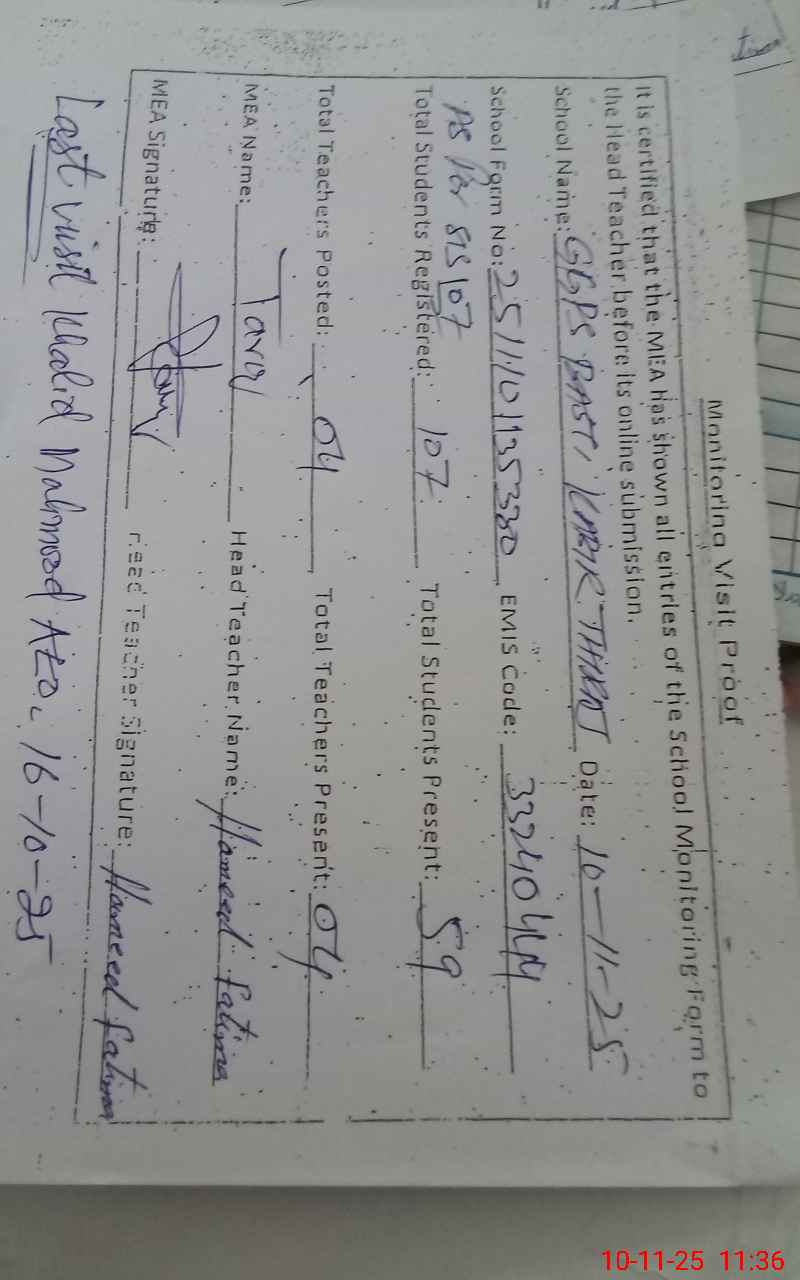 Monitoring Visit Proof
It is certified that the MEA has shown all entries of the School Monitoring Form to
the Head Teacher before its online submission.
School Name: GGPS BASTI KABIR THIRAJ Date: 10-11-25
School Form No: 251110113530 EMIS Code: 33240444
As per SIS 107
Total Students Registered: 107 Total Students Present: 59
Total Teachers Posted: 04 Total Teachers Present: 04
MEA Name: Tariq Head Teacher Name: Hameed Fatima
MEA Signature: Head Teacher Signature: Hameed Fatima
Last visit Khalid Mahmood AEO, 16-10-25
10-11-25 11:36